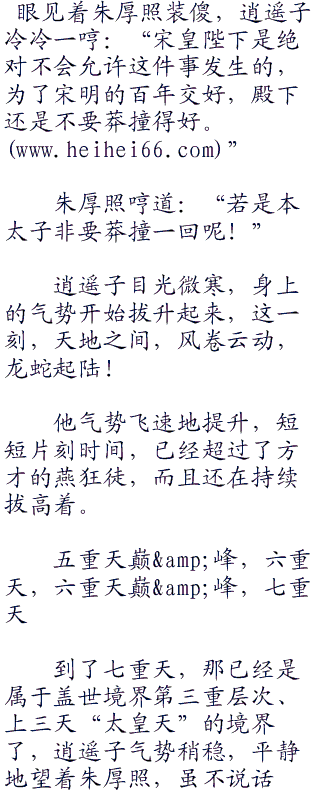 眼见着朱厚照装傻，逍遥子
冷冷一哼：“宋皇陛下是绝
对不会允许这件事发生的，
为了宋明的百年交好，殿下
还是不要莽撞得好。
(www.heihei66.com)”
朱厚照哼道：“若是本
太子非要莽撞一回呢！”
逍遥子目光微寒，身上
的气势开始拔升起来，这一
刻，天地之间，风卷云动，
龙蛇起陆！
他气势飞速地提升，短
短片刻时间，已经超过了方
才的燕狂徒，而且还在持续
拔高着。
五重天巅&amp;峰，六重
天，六重天巅&amp;峰，七重
天
到了七重天，那已经是
属于盖世境界第三重层次、
上三天“太皇天”的境界
了，逍遥子气势稍稳，平静
地望着朱厚照，虽不说话